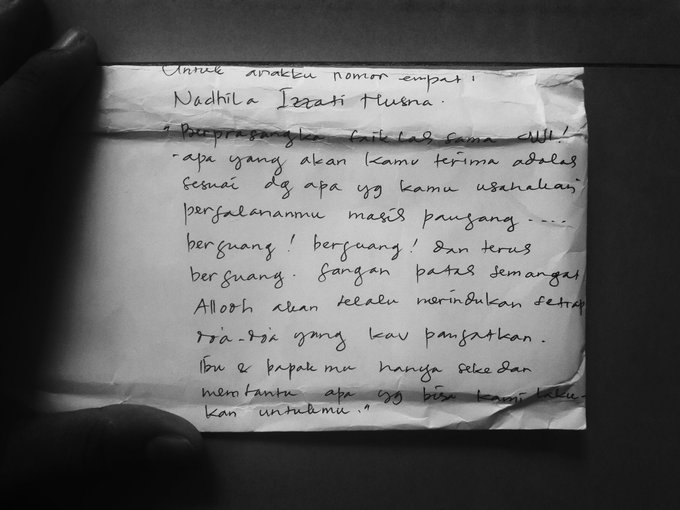 Untuk anakku nomor empat :
Nadhila Izzati Husna.
"Berprasangka baiklah sama الله!
- apa yang akan kamu terima adalah
sesuai dg apa yg kamu usahakan
perjalananmu masih panjang ....
berjuang! berjuang! dan terus
berjuang. Jangan patah semangat
Allooh akan selalu merindukan setiap
do'a-do'a yang kau panjatkan.
Ibu & bapak mu hanya sekedar
membantu apa yg bisa kami laku-
kan untukmu."